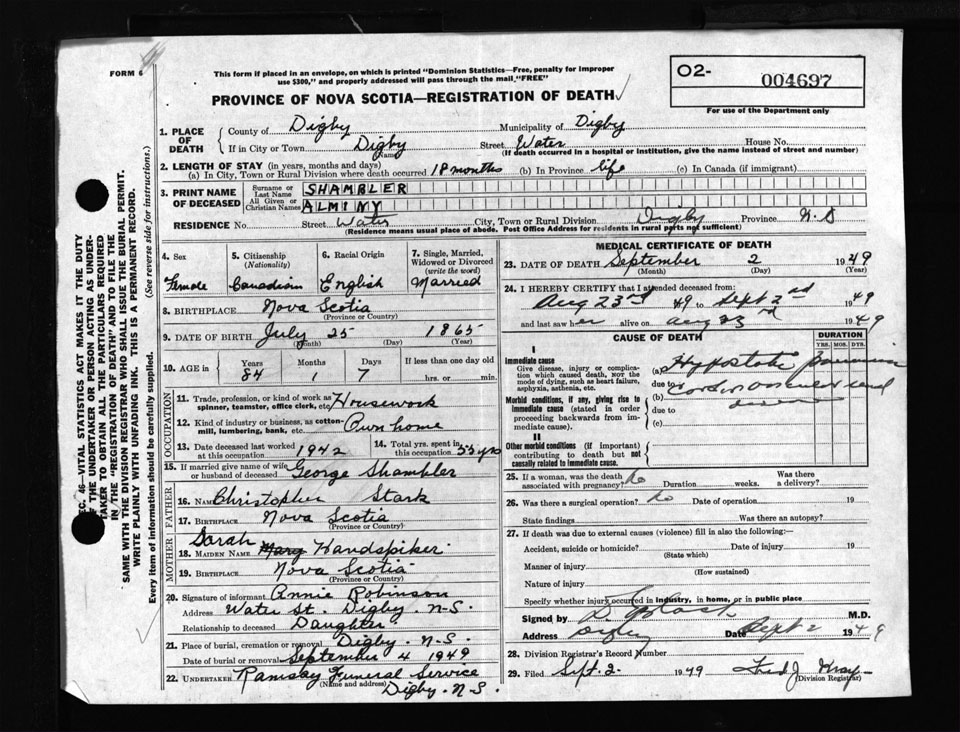 FORM 6
This form if placed in an envelope, on which is printed "Dominion Statistics—Free, penalty for improper
use $300," and properly addressed will pass through the mail "FREE"
O2-
004697
For use of the Department only
PROVINCE OF NOVA SCOTIA—REGISTRATION OF DEATH
1. PLACE OF DEATH
County of Digby Municipality of Digby
If in City or Town Digby Street Water House No.
Name
(If death occurred in a hospital or institution, give the name instead of street and number)
2. LENGTH OF STAY (in years, months and days)
(a) In City, Town or Rural Division where death occurred 18 months (b) In Province life (c) In Canada (if immigrant)
3. PRINT NAME OF DECEASED
Surname or Last Name SHAMBLER
All Given or Christian Names ALMINY
RESIDENCE No. Street Water City, Town or Rural Division Digby Province N.S
(Residence means usual place of abode. Post Office Address for residents in rural parts not sufficient)
4. Sex
Female
5. Citizenship (Nationality)
Canadian
6. Racial Origin
English
7. Single, Married, Widowed or Divorced (write the word)
Married
8. BIRTHPLACE Nova Scotia
(Province or Country)
9. DATE OF BIRTH July 25 1865
(Month) (Day) (Year)
10. AGE in
Years Months Days If less than one day old
84 1 7 hrs. or min.
OCCUPATION
11. Trade, profession, or kind of work as spinner, teamster, office clerk, etc. Housework
12. Kind of industry or business, as cotton-mill, lumbering, bank, etc. Own home
13. Date deceased last worked at this occupation 1942
14. Total yrs. spent in this occupation 55 yrs
15. If married give name of wife or husband of deceased George Shambler
FATHER
16. NAME Christopher Stark
17. BIRTHPLACE Nova Scotia
(Province or Country)
MOTHER
Sarah
18. MAIDEN NAME Mary Handspiker
19. BIRTHPLACE Nova Scotia
(Province or Country)
20. Signature of informant Annie Robinson
Address Water St. Digby. N-S.
Relationship to deceased Daughter
21. Place of burial, cremation or removal Digby. N-S.
Date of burial or removal September 4 1949
22. UNDERTAKER Ramsay Funeral Service
(Name and address) Digby. N-S.
MEDICAL CERTIFICATE OF DEATH
23. DATE OF DEATH September 2 1949
(Month) (Day) (Year)
24. I HEREBY CERTIFY that I attended deceased from:
Aug 23rd 49 to Sept 2nd 1949
and last saw her alive on Aug 23rd 1949
CAUSE OF DEATH
DURATION
YRS. MOS. DYS.
I
Immediate cause
Give disease, injury or complication which caused death, NOT the mode of dying, such as heart failure, asphyxia, asthenia, etc.
(a) Hypostatic
due to
Morbid conditions, if any, giving rise to immediate cause (stated in order proceeding backwards from immediate cause).
(b)
due to
(c)
II
Other morbid conditions (if important) contributing to death but not causally related to immediate cause.
25. If a woman, was the death associated with pregnancy? No Duration weeks. Was there a delivery?
26. Was there a surgical operation? No Date of operation 19
State findings Was there an autopsy?
27. If death was due to external causes (violence) fill in also the following:
Accident, suicide or homicide? Date of injury 19
(State which)
Manner of injury
(How sustained)
Nature of injury
Specify whether injury occurred in industry, in home, or in public place
Signed by M.D.
Address Digby Date Sept 2 1949
28. Division Registrar's Record Number
29. Filed Sept. 2 1949
(Division Registrar)
SEC. 46—VITAL STATISTICS ACT MAKES IT THE DUTY
OF THE UNDERTAKER OR PERSON ACTING AS UNDER-
TAKER TO OBTAIN ALL THE PARTICULARS REQUIRED
IN THE "REGISTRATION OF DEATH" AND TO FILE THE
SAME WITH THE DIVISION REGISTRAR WHO SHALL ISSUE THE BURIAL PERMIT.
WRITE PLAINLY WITH UNFADING INK. THIS IS A PERMANENT RECORD.
Every item of information should be carefully supplied. (See reverse side for instructions.)